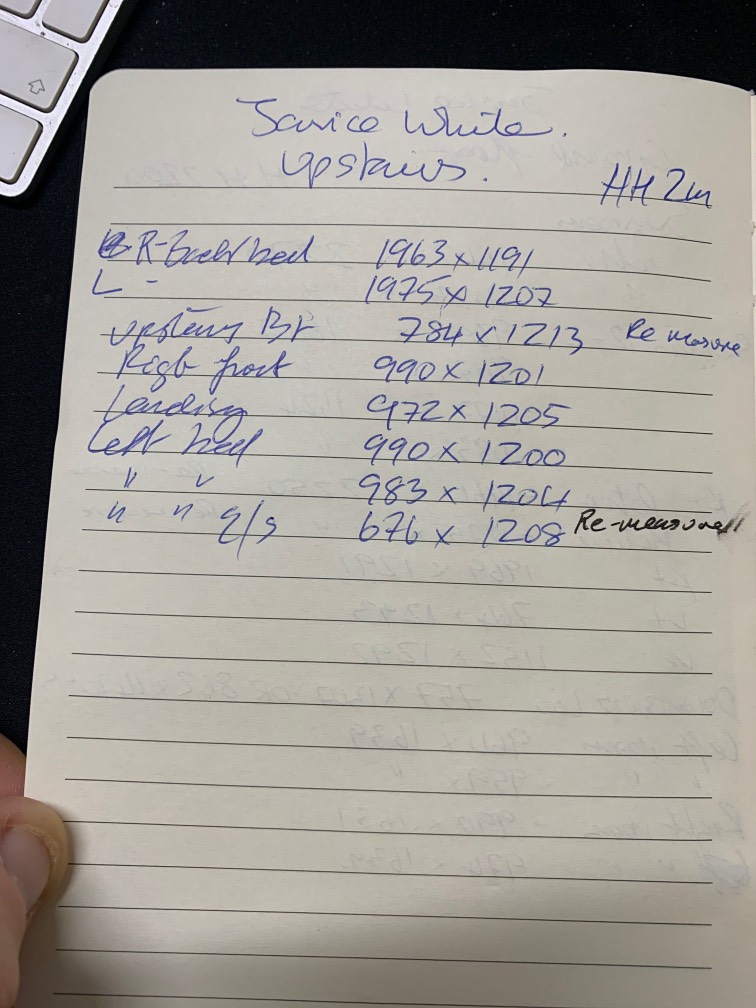 Janice White.
Upstairs.
HH 2m
R-Back bed 1963 x 1191
L - 1975 x 1207
upstairs Br 784 x 1213 Re measure
Right front 990 x 1201
Landing 972 x 1205
Left bed 990 x 1200
" " 983 x 1204
" " e/s 676 x 1208 Re-measure